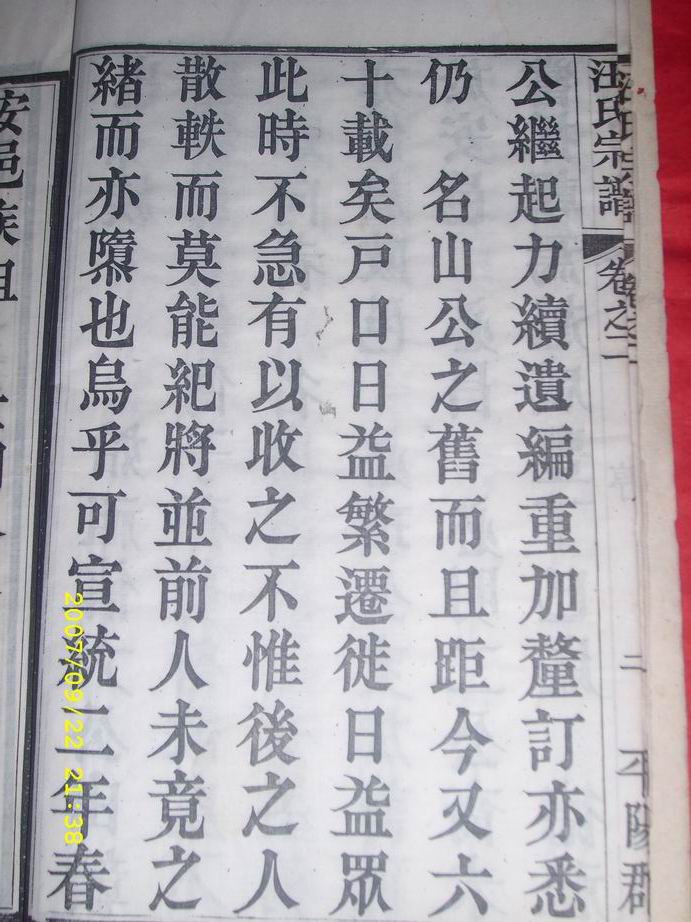 汪氏宗譜 卷之二 二 平陽郡
公繼起力續遺編重加釐訂亦悉
仍 名山公之舊而且距今又六
十載矣戸口日益繁遷徙日益眾
此時不急有以收之不惟後之人
散軼而莫能紀將並前人未竟之
緒而亦隳也烏乎可宣統二年春
2007/09/22 21:38